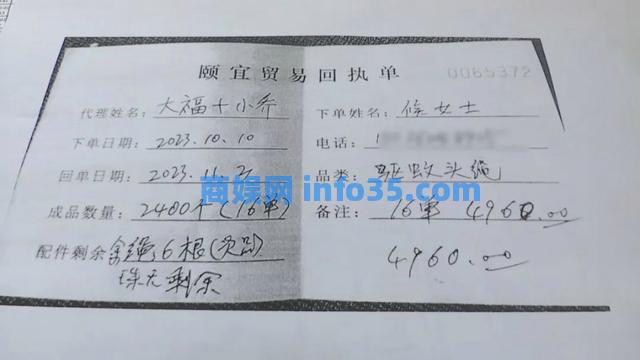 颐宜贸易回执单 0065372
代理姓名: 大福+小乔 下单姓名: 侯女士
下单日期: 2023.10.10 电话:
回单日期: 2023.11.2 品类: 驱蚊头绳
商媒网 info35.com
成品数量: 2400个(16单) 备注: 16单 4960.00
配件剩余 绳6根(次品) 4960.00
珠无剩余